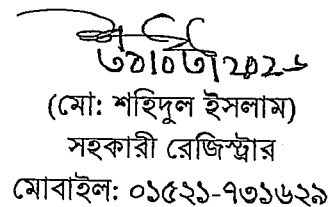 (মো: শহিদুল ইসলাম)
সহকারী রেজিস্ট্রার
মোবাইল: ০১৫২১-৭৩১৬২৯